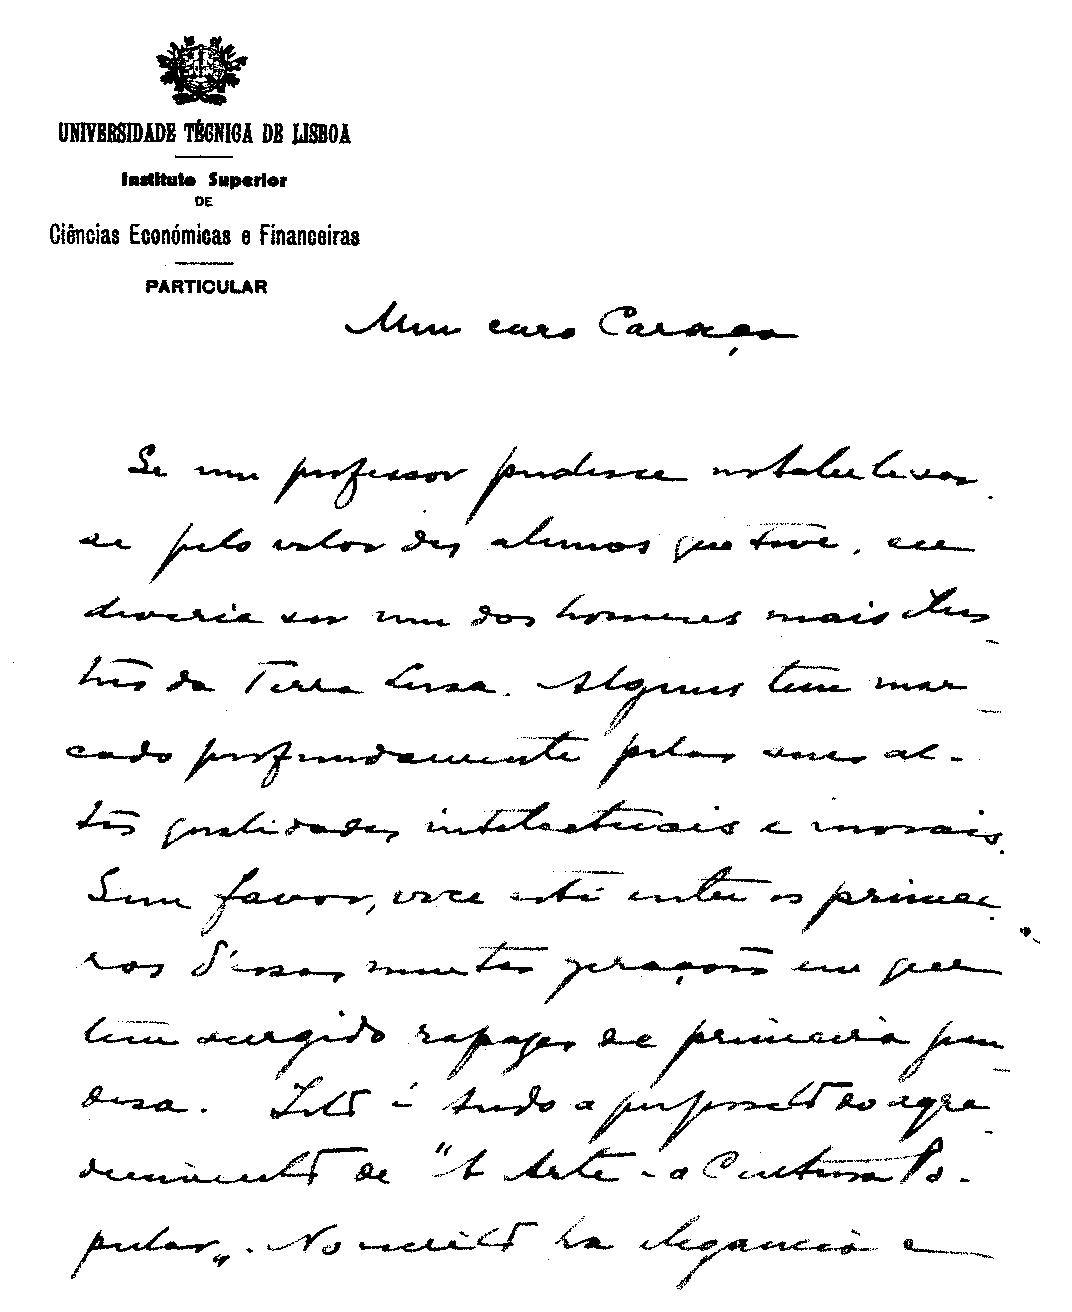 UNIVERSIDADE TÉCNICA DE LISBOA
Instituto Superior
DE
Ciências Económicas e Financeiras
PARTICULAR
Meu caro Caraça
Se um professor pudesse notabilisar-
se pelo valor dos alunos que teve, eu
deveria ser um dos homens mais ilus-
tres da Terra Lusa. Alguns teem mar-
cado profundamente pelas suas al-
tas qualidades intelectuais e morais.
Sem favor, voce está entre os primei-
ros d'essas muitas gerações em que
teem surgido rapazes de primeira gran-
desa. Isto é tudo a proposito do agra-
decimento de "A Arte e a Cultura Po-
pular„. No escrito ha elegancia e